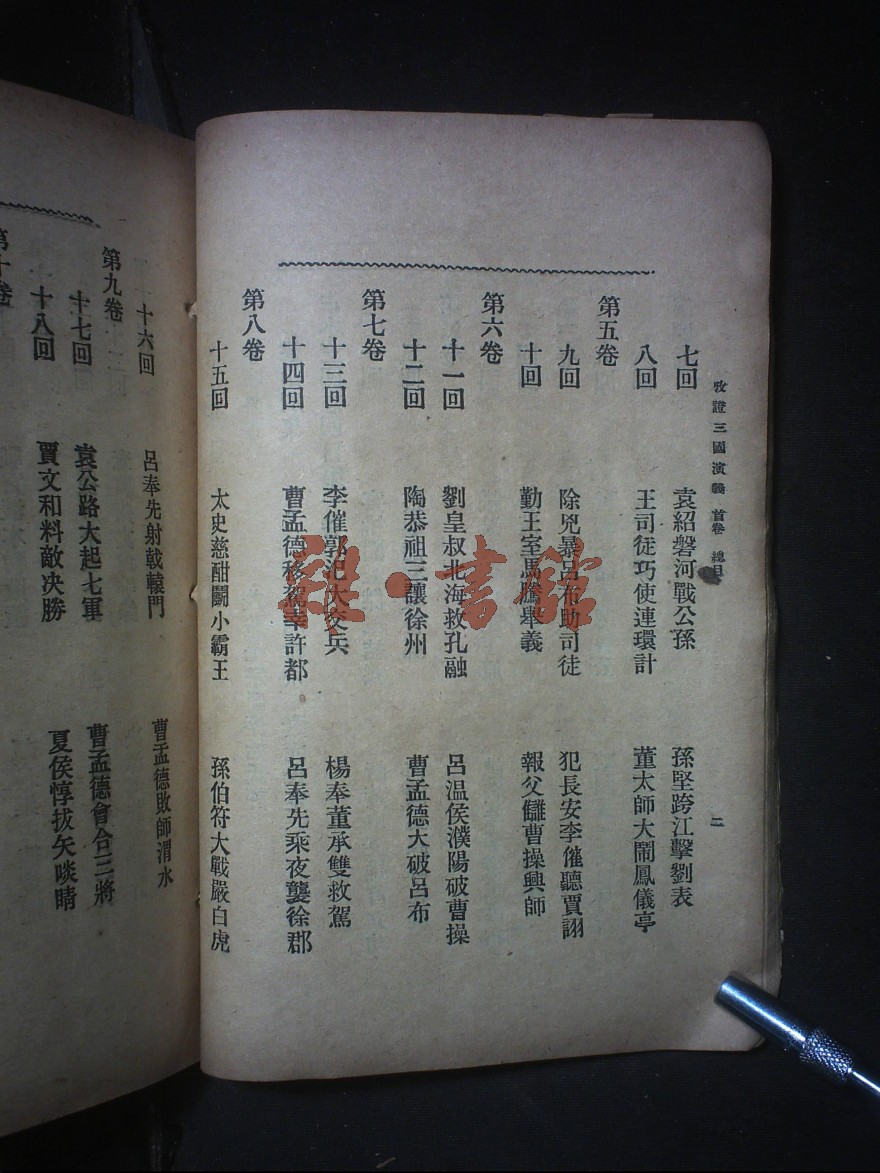 攷證三國演義 首卷 總目 二
七回 袁紹磐河戰公孫 孫堅跨江擊劉表
八回 王司徒巧使連環計 董太師大鬧鳳儀亭
第五卷
九回 除兇暴呂布助司徒 犯長安李傕聽賈詡
十回 勤王室馬騰舉義 報父讎曹操興師
第六卷
十一回 劉皇叔北海救孔融 呂温侯濮陽破曹操
十二回 陶恭祖三讓徐州 曹孟德大破呂布
第七卷
十三回 李傕郭汜大交兵 楊奉董承雙救駕
十四回 曹孟德移駕幸許都 呂奉先乘夜襲徐郡
第八卷
十五回 太史慈酣鬬小霸王 孫伯符大戰嚴白虎
十六回 呂奉先射戟轅門 曹孟德敗師淯水
第九卷
十七回 袁公路大起七軍 曹孟德會合三將
十八回 賈文和料敵決勝 夏侯惇拔矢啖睛
第十卷
雜·書館